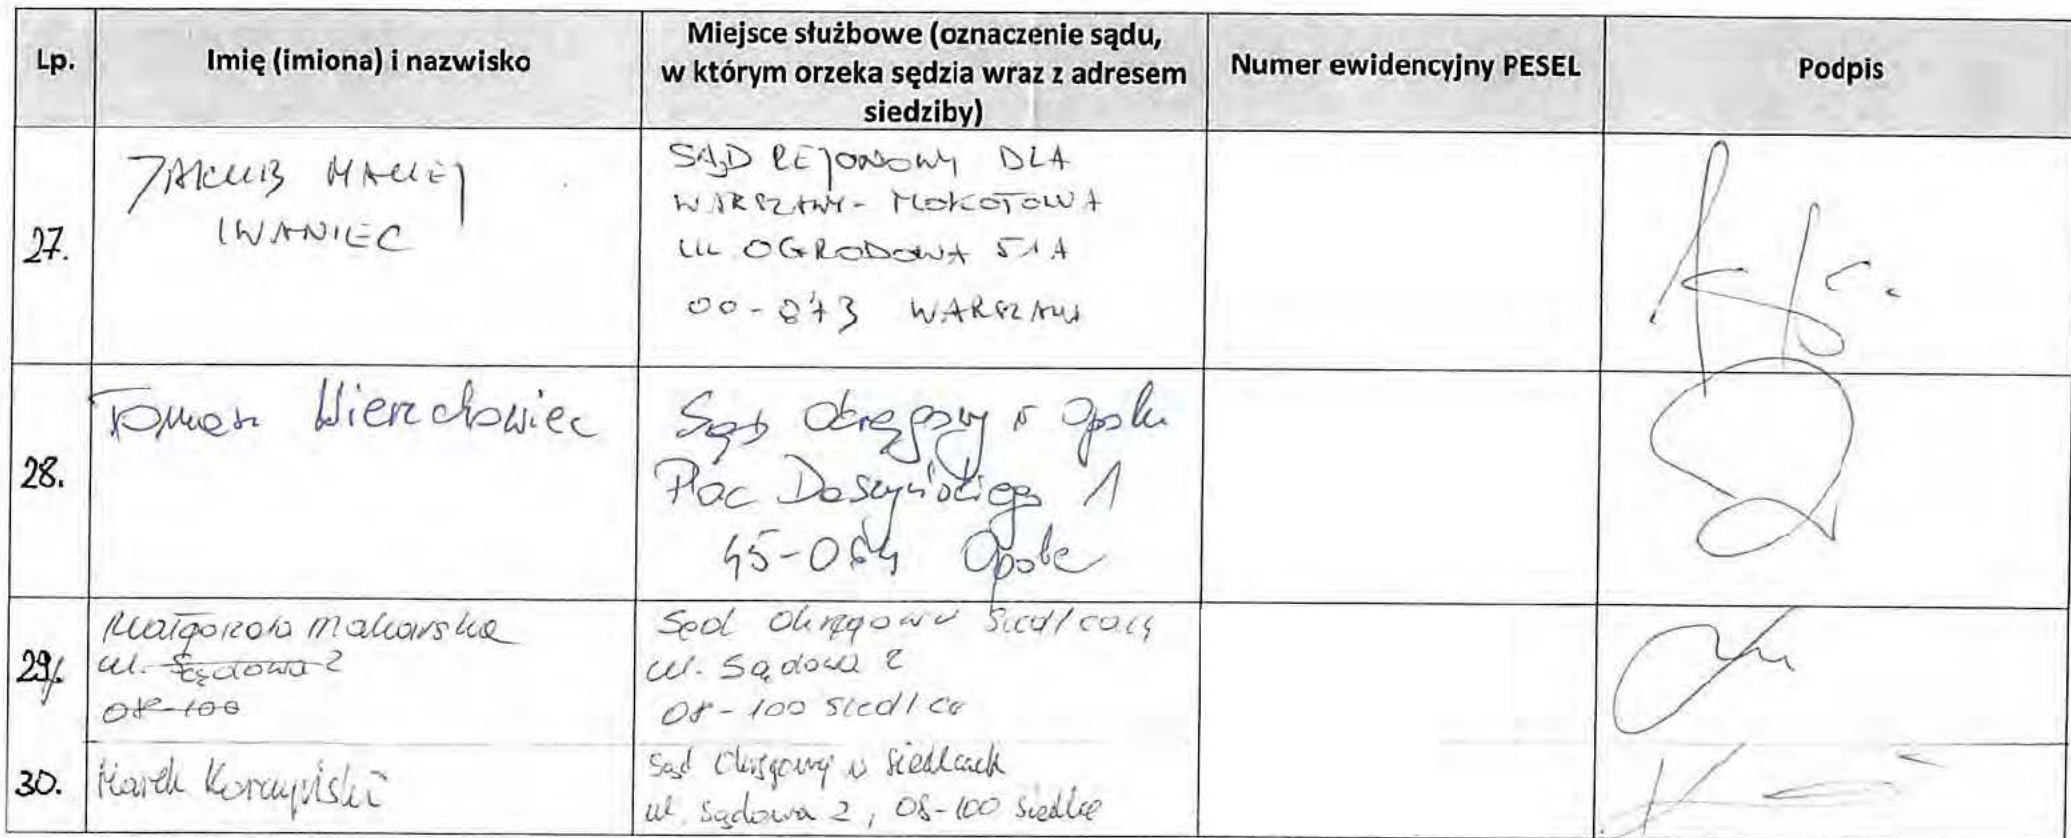 Lp.
Imię (imiona) i nazwisko
Miejsce służbowe (oznaczenie sądu,
w którym orzeka sędzia wraz z adresem
siedziby)
Numer ewidencyjny PESEL
Podpis
27.
JAKUB MACIEJ
IWANIEC
SĄD REJONOWY DLA
WARSZAWY - MOKOTOWA
UL OGRODOWA 51A
00-873 WARSZAWA
28.
Tomasz Wierzchowiec
Sąd Okręgowy w Opolu
Plac Daszyńskiego 1
45-064 Opole
29.
Małgorzata Makarska
ul. Sądowa 2
08-100
Sąd Okręgowy Siedlcach
ul. Sądowa 2
08-100 Siedlce
30.
Marek Korczyński
Sąd Okręgowy w Siedlcach
ul. Sądowa 2, 08-100 Siedlce